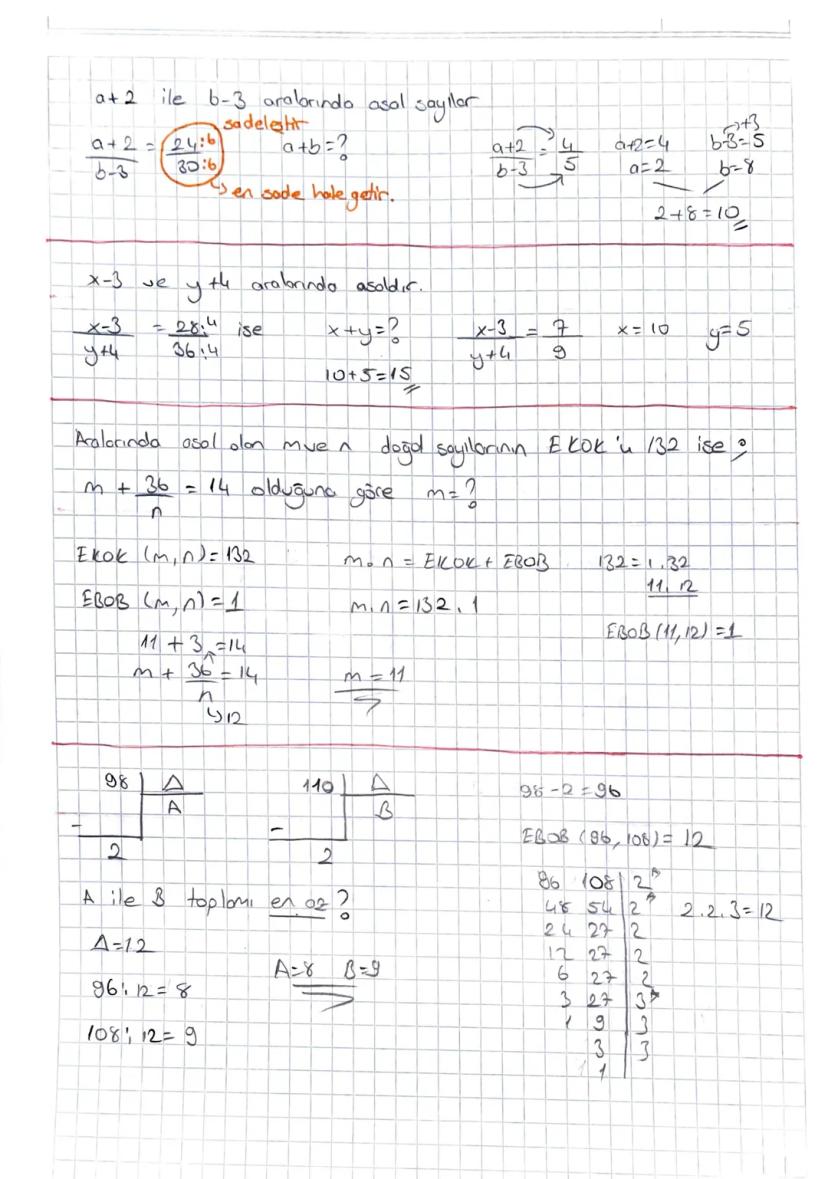 a+2 ile b-3 aralarında asal sayılar
sadeleştir
a+2 / b-3 = 24:6 / 30:6 a+b=?
en sade hale getir.
a+2 / b-3 = 4 / 5 a+2=4 b-3=5 +3
a=2 b=8
2+8=10
x-3 ve y+4 aralarında asaldır.
x-3 / y+4 = 28:4 / 36:4 ise x+y=? x-3 / y+4 = 7 / 9 x=10 y=5
10+5=15
Aralarında asal olan m ve n doğal sayılarının EKOK'u 132 ise;
m + 36 / n = 14 olduğuna göre m=?
EKOK (m,n)=132 m.n = EKOK + EBOB 132=1.32
11.12
EBOB (m,n)=1 m.n=132.1
EBOB(11,12)=1
11 + 3 =14
m + 36 / n = 14 m=11
12
98 Δ 110 Δ 98-2=96
A B
- -
2 2
EBOB (96,108)= 12
A ile B toplamı en az?
96 108 2
48 54 2 2.2.3=12
24 27 2
12 27 2
6 27 2
3 27 3
1 9 3
3 3
1
Δ=12
A=8 B=9
96:12=8
108:12=9